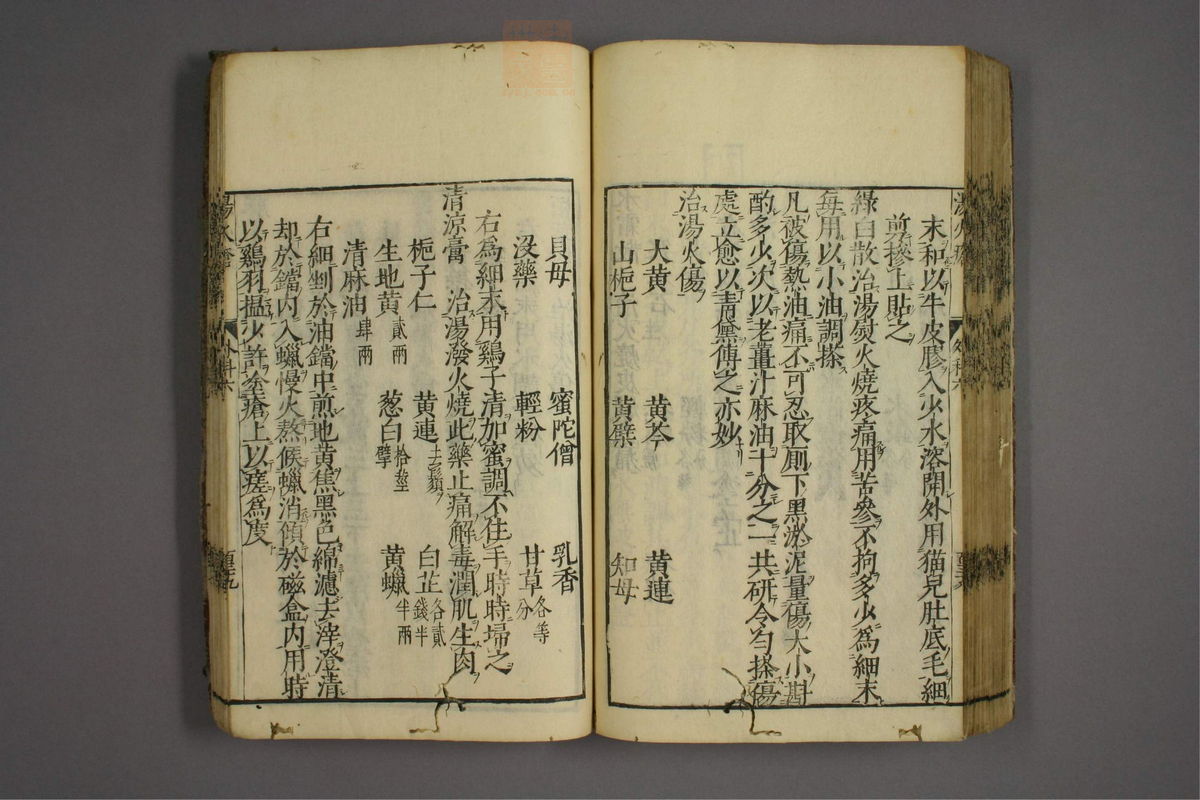 末和以牛皮膠入少水溶開外用猫兒肚底毛細
剪摻上貼之
綠白散治湯熨火燒疼痛用苦參不拘多少爲細末
每用以小油調搽
凡被傷熱油痛不可忍取厠下黑淤泥量傷大小斟
酌多少次以老薑汁麻油十分之一共研令勻搽傷
處立愈以青黛傅之亦妙
治湯火傷
大黄 黄芩 黄連
山梔子 黄檗 知母
貝母 蜜陀僧 乳香
沒藥 輕粉 甘草各等分
右爲細末用鷄子清加蜜調不住手時時掃之
清涼膏 治湯發火燒此藥止痛解毒潤肌生肉
梔子仁 黄連去鬚 白芷各貳錢半
生地黄貳兩 葱白拾莖擘 黄蠟半兩
清麻油肆兩
右細剉於油鐺中煎地黄焦黑色綿濾去滓澄清
却於鐺内入蠟慢火熬候蠟消傾於磁盒内用時
以鷄羽搵少許塗瘡上以瘥爲度